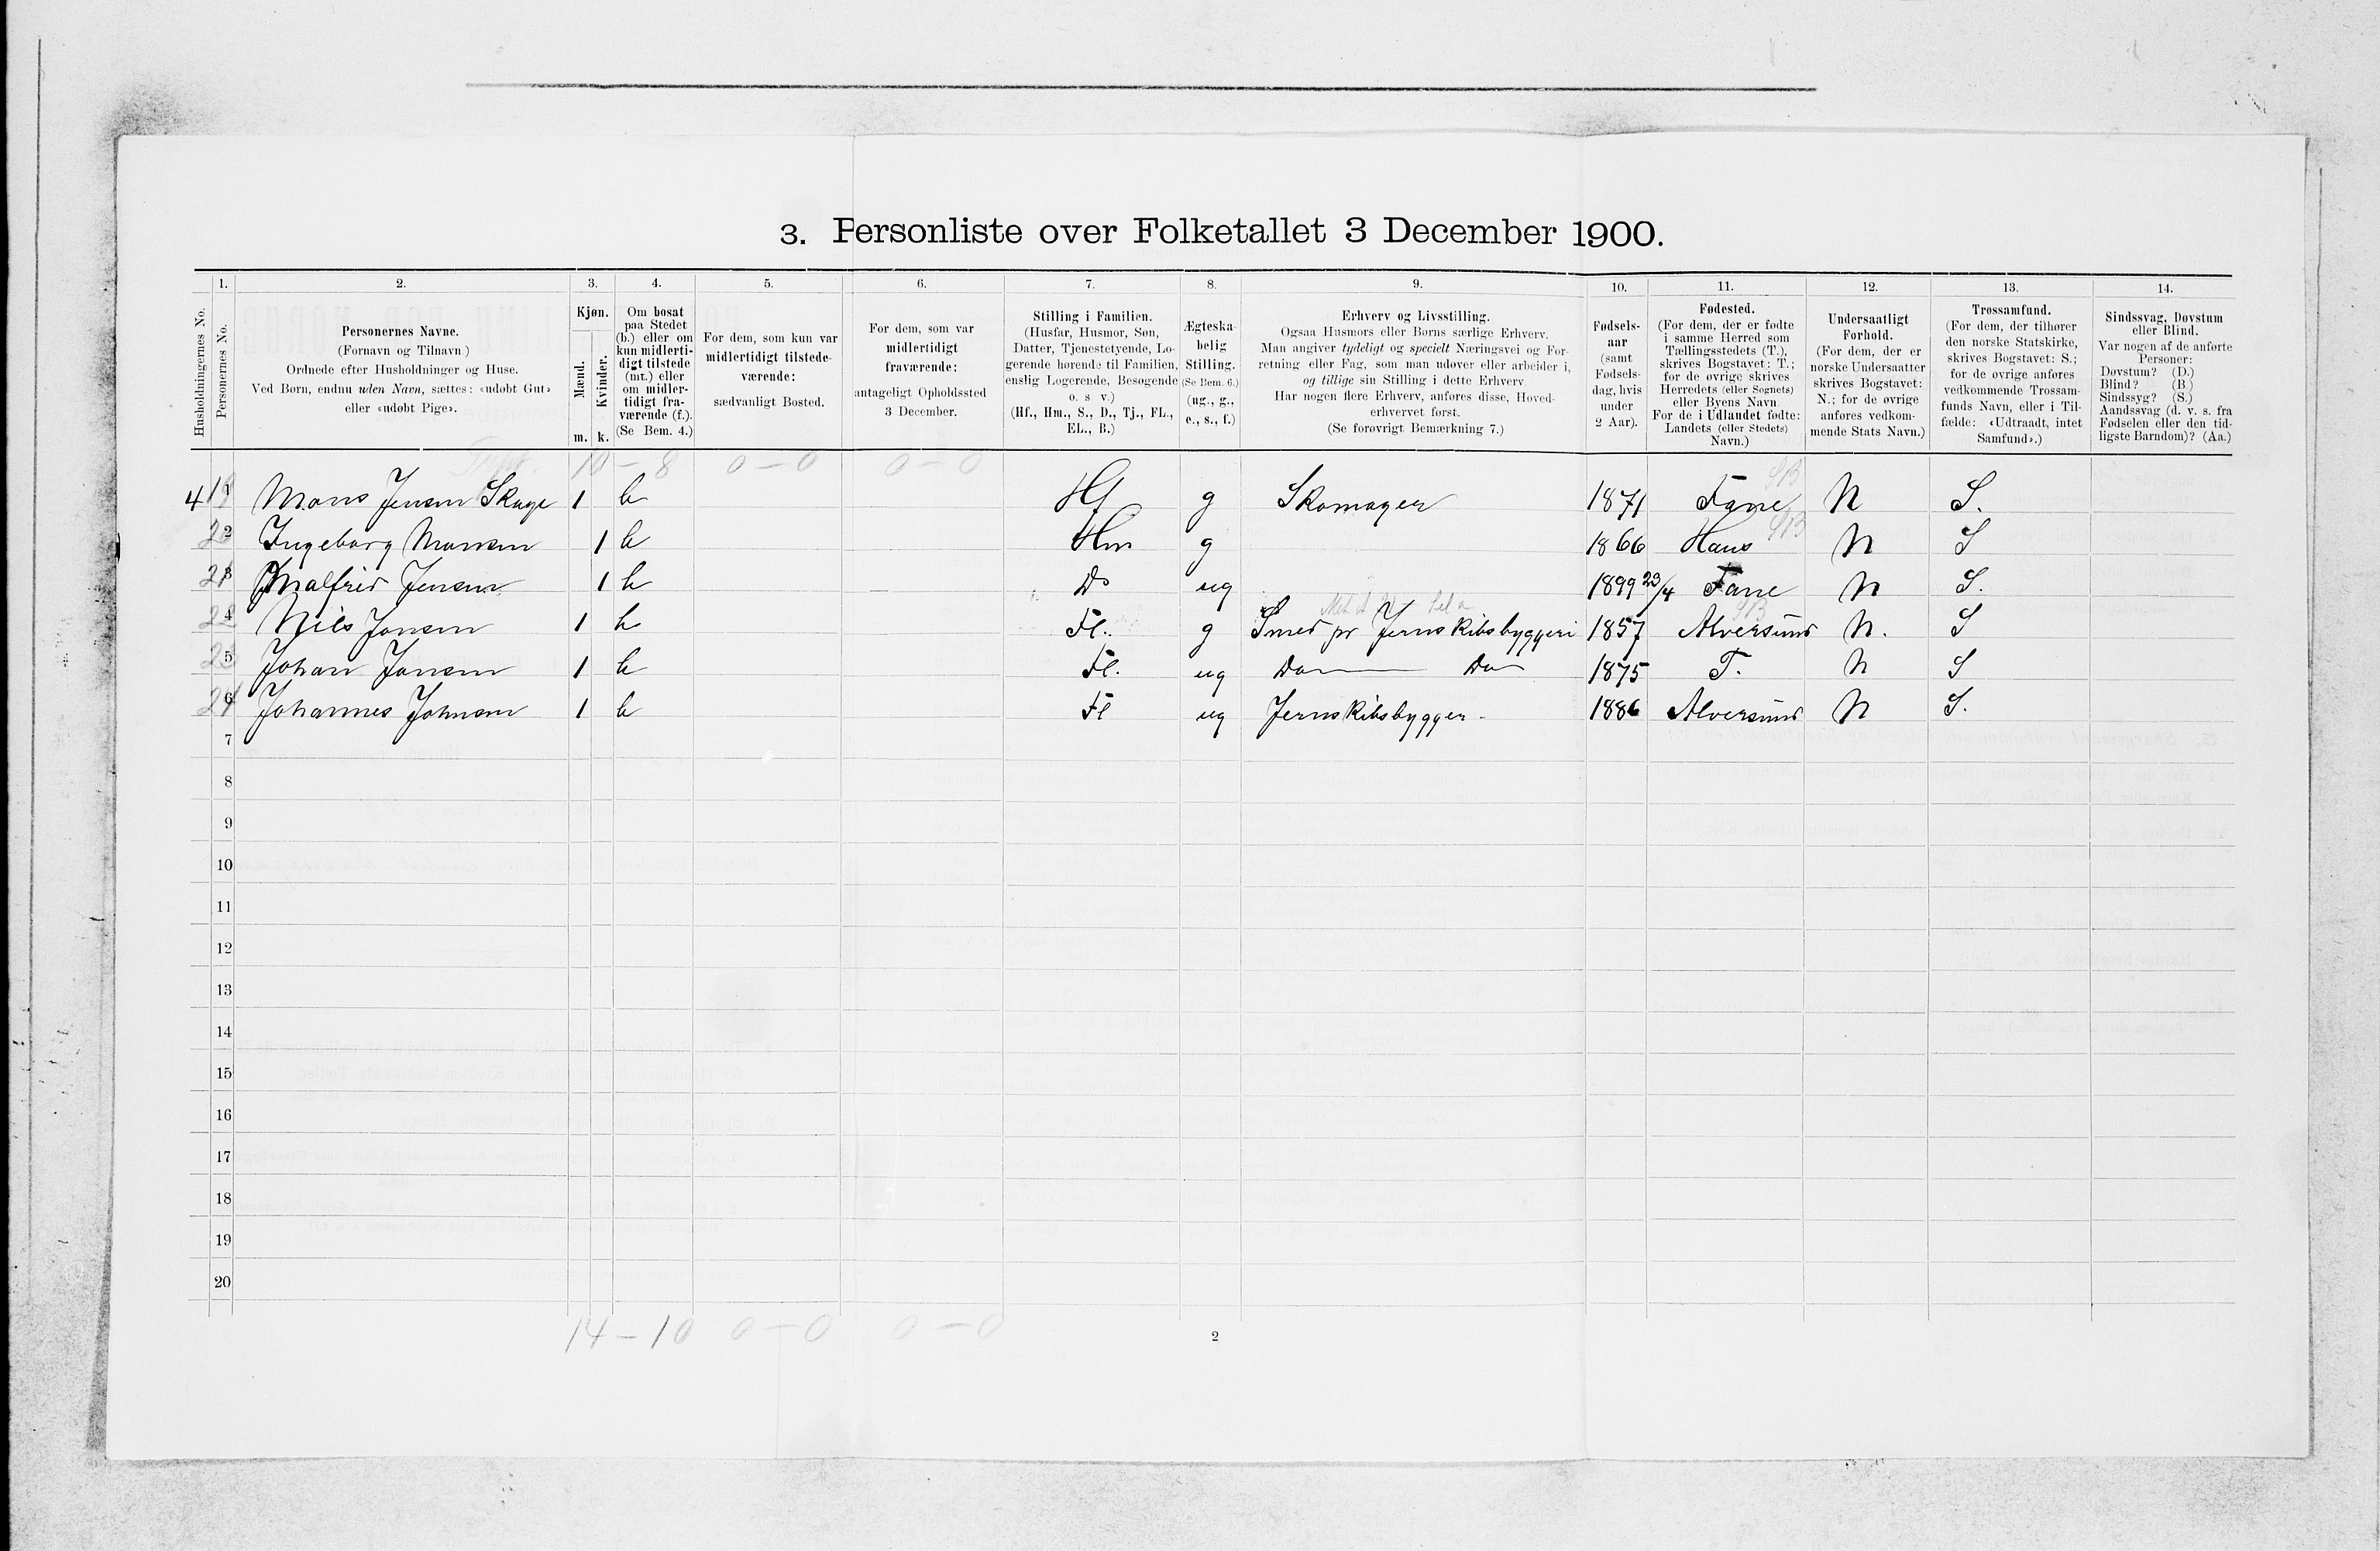 3. Personliste over Folketallet 3 December 1900.
1. 2. 3. 4. 5. 6. 7. 8. 9. 10. 11. 12. 13. 14.
Husholdningernes No.
Personernes No.
Personernes Navne.
(Fornavn og Tilnavn)
Ordnede efter Husholdninger og Huse.
Ved Børn, endnu uden Navn, sættes: «udøbt Gut»
eller «udøbt Pige».
Kjøn.
Mænd.
Kvinder.
m. k.
Om bosat
paa Stedet
(b.) eller om
kun midlerti-
digt tilstede
(mt.) eller
om midler-
tidigt fra-
værende (f.).
(Se Bem. 4.)
For dem, som kun var
midlertidigt tilstede-
værende:
sædvanligt Bosted.
For dem, som var
midlertidigt
fraværende:
antageligt Opholdssted
3 December.
Stilling i Familien.
(Husfar, Husmor, Søn,
Datter, Tjenestetyende, Lo-
gerende hørende til Familien,
enslig Logerende, Besøgende
o. s v.)
(Hf., Hm., S., D., Tj., FL.,
EL., B.)
Ægteska-
belig
Stilling.
(Se Bem. 6.)
(ug., g.,
e., s., f.)
Erhverv og Livsstilling.
Ogsaa Husmors eller Børns særlige Erhverv.
Man angiver tydeligt og specielt Næringsvei og For-
retning eller Fag, som man udøver eller arbeider i,
og tillige sin Stilling i dette Erhverv.
Har nogen flere Erhverv, anføres disse, Hoved-
erhvervet først.
(Se forøvrigt Bemærkning 7.)
Fødsels-
aar
(samt
Fødsels-
dag, hvis
under
2 Aar).
Fødested.
(For dem, der er fødte
i samme Herred som
Tællingsstedets (T.),
skrives Bogstavet: T.;
for de øvrige skrives
Herredets (eller Sognets)
eller Byens Navn.
For de i Udlandet fødte:
Landets (eller Stedets)
Navn.)
Undersaatligt
Forhold.
(For dem, der er
norske Undersaatter
skrives Bogstavet:
N.; for de øvrige
anføres vedkom-
mende Stats Navn.)
Trossamfund.
(For dem, der tilhører
den norske Statskirke,
skrives Bogstavet: S.;
for de øvrige anføres
vedkommende Trossam-
funds Navn, eller i Til-
fælde: «Udtraadt, intet
Samfund».)
Sindssvag, Døvstum
eller Blind.
Var nogen af de anførte
Personer:
Døvstum? (D.)
Blind? (B.)
Sindssyg? (S.)
Aandssvag (d. v. s. fra
Fødselen eller den tid-
ligste Barndom)? (Aa.)
10 – 8 0 – 0 0 – 0
4 1 Mons Jensen Skage 1 b Hf g Skomager 1871 Fane N S.
2 Ingeborg Monsen 1 b Hm g 1866 Haus N S
3 Malfrid Jensen 1 b D ug 1899 23/4 Fane N S.
4 Nils Jonsen 1 b Fl. g Smed pr Jernskibsbyggeri 1857 Alversund N. S
5 Johan Jonsen 1 b Fl. ug Do Do 1875 T. N S
6 Johannes Johnsen 1 b Fl ug Jernskibsbygger 1886 Alversund N S.
7
8
9
10
11
12
13
14
15
16
17
18
19
20
14 – 10 0 – 0 0 – 0
2